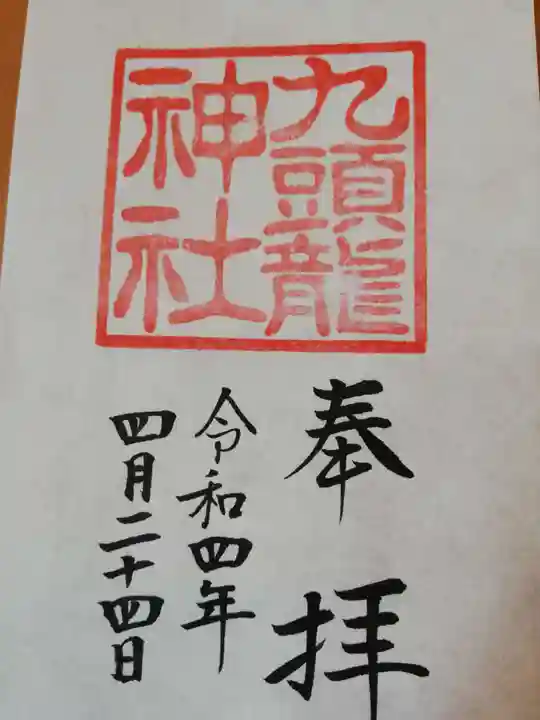 九頭龍
神社
奉拝
令和四年
四月二十四日